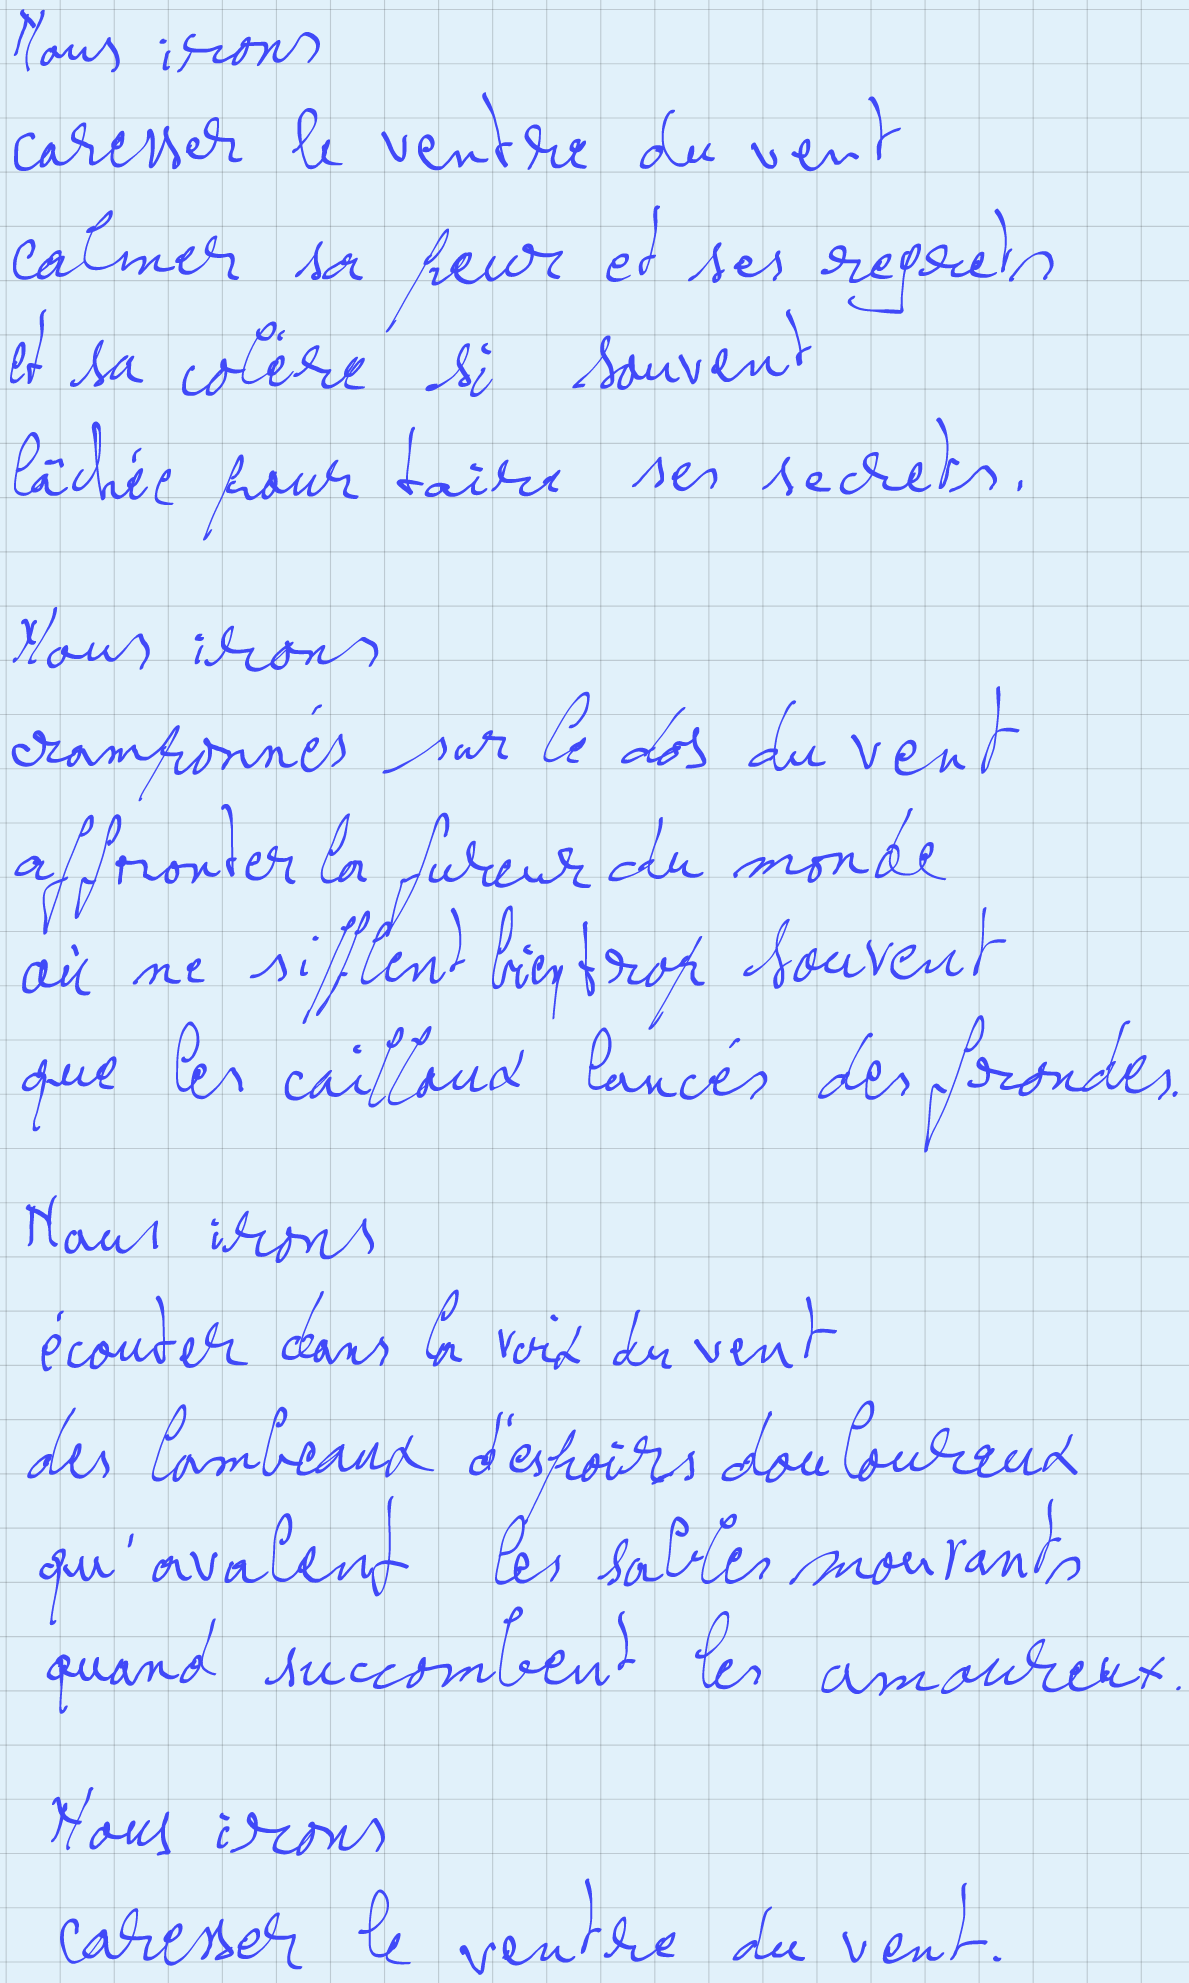 Nous irons
caresser le ventre du vent
calmer sa peur et ses regrets
et sa colère si souvent
lâchée pour taire ses secrets.
Nous irons
cramponnés sur le dos du vent
affronter la fureur du monde
où ne sifflent bien trop souvent
que les cailloux lancés des frondes.
Nous irons
écouter dans la voix du vent
des lambeaux d'espoirs douloureux
qu'avalent les sables mourants
quand succombent les amoureux.
Nous irons
caresser le ventre du vent.